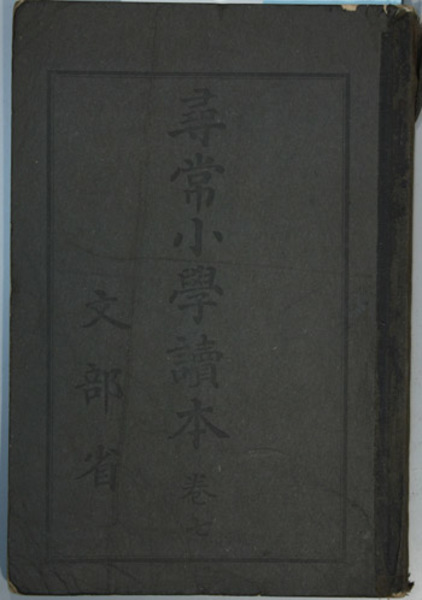 尋常小學讀本 卷七
文部省